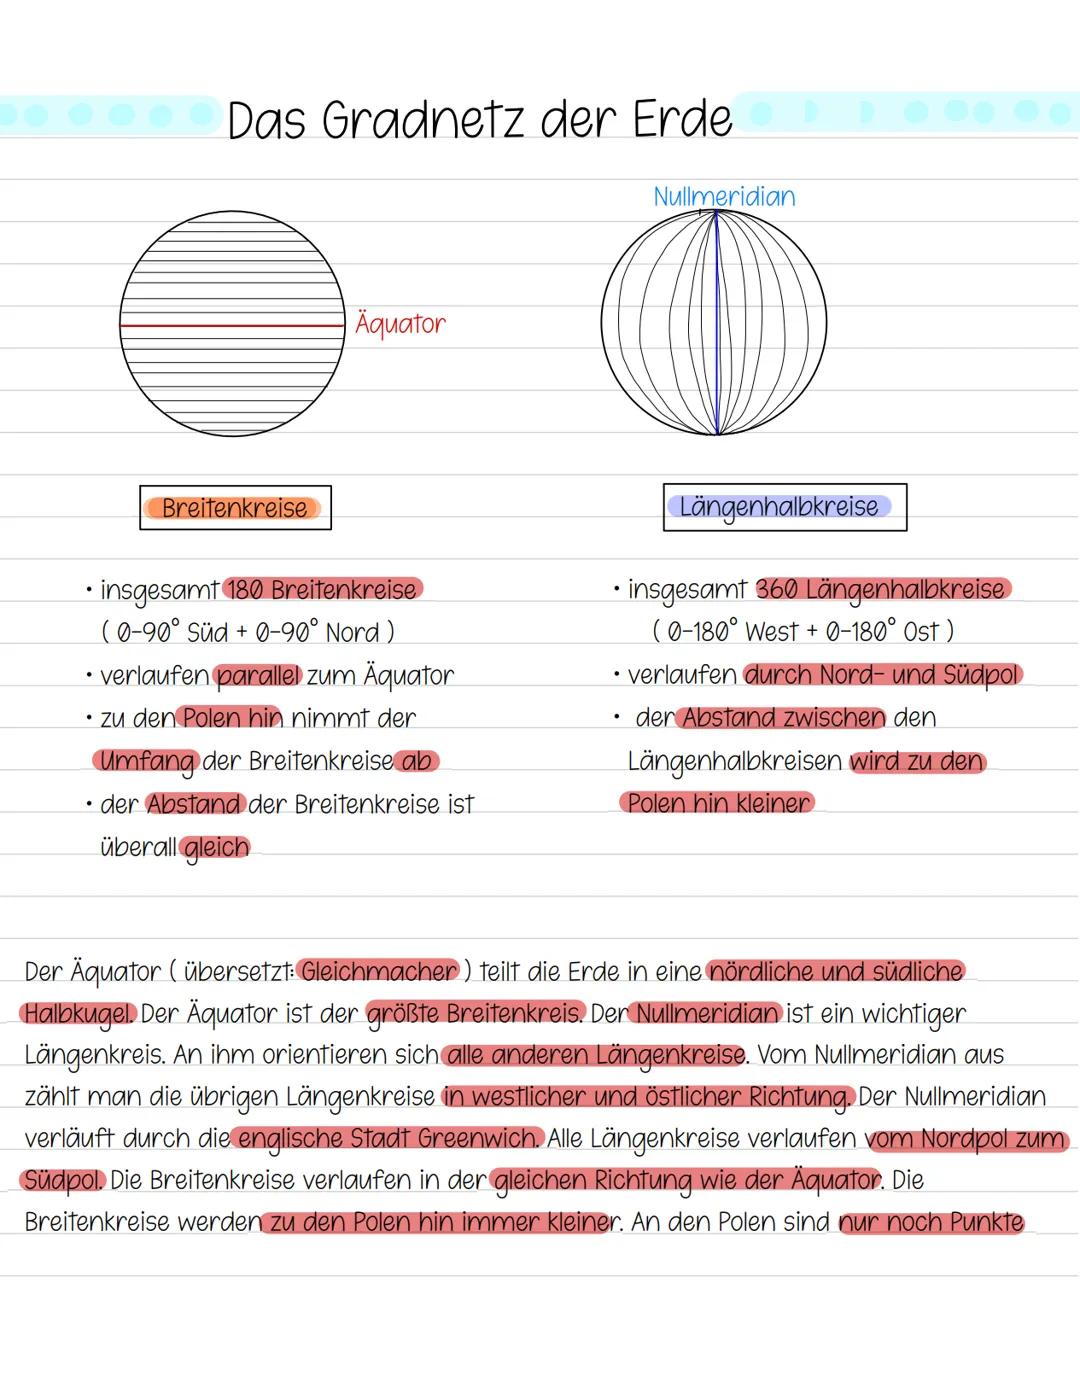 Das Gradnetz der Erde
Nullmeridian
Äquator
Breitenkreise
• insgesamt 180 Breitenkreise
( 0-90° Süd + 0-90° Nord )
• verlaufen parallel zum Äquator
• zu den Polen hin nimmt der
Umfang der Breitenkreise ab
• der Abstand der Breitenkreise ist
überall gleich
Längenhalbkreise
• insgesamt 360 Längenhalbkreise
( 0-180° West + 0-180° Ost )
• verlaufen durch Nord- und Südpol
• der Abstand zwischen den
Längenhalbkreisen wird zu den
Polen hin kleiner
Der Äquator ( übersetzt: Gleichmacher ) teilt die Erde in eine nördliche und südliche
Halbkugel. Der Äquator ist der größte Breitenkreis. Der Nullmeridian ist ein wichtiger
Längenkreis. An ihm orientieren sich alle anderen Längenkreise. Vom Nullmeridian aus
zählt man die übrigen Längenkreise in westlicher und östlicher Richtung. Der Nullmeridian
verläuft durch die englische Stadt Greenwich. Alle Längenkreise verlaufen vom Nordpol zum
Südpol. Die Breitenkreise verlaufen in der gleichen Richtung wie der Äquator. Die
Breitenkreise werden zu den Polen hin immer kleiner. An den Polen sind nur noch Punkte